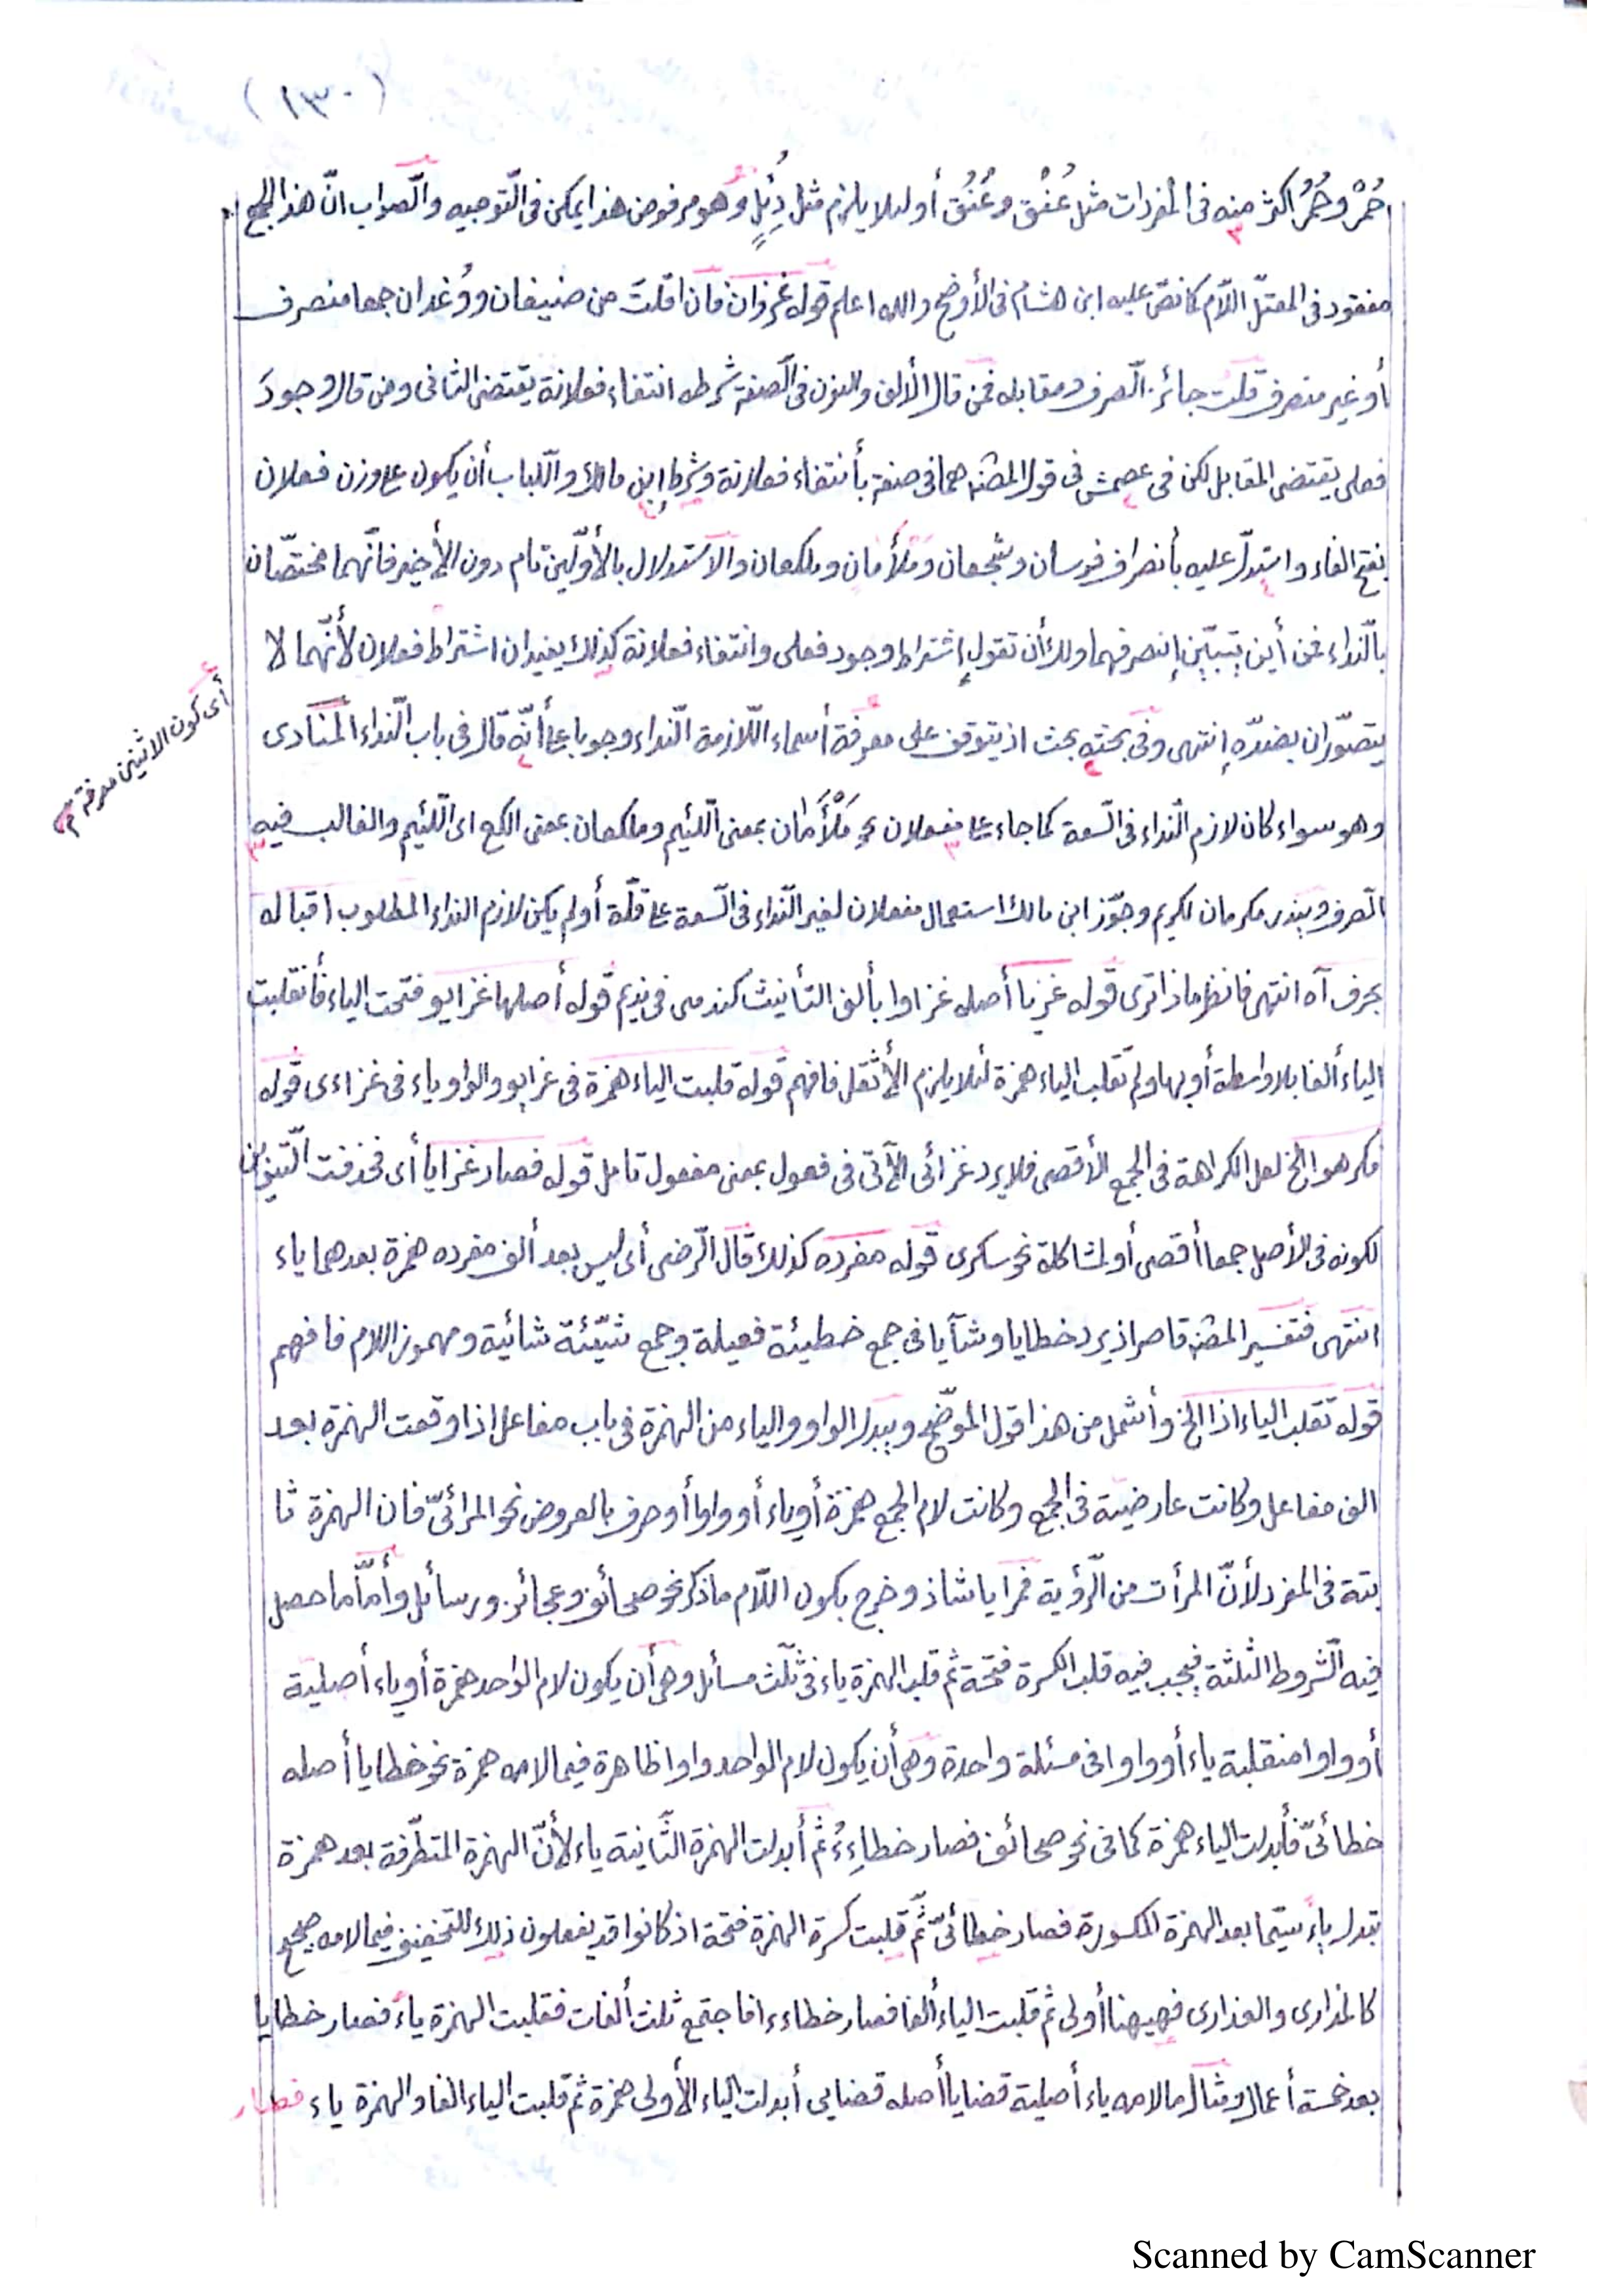 (١٣٠)
حُمْر وحُمُر اكثر منه فى المفردات مثل عُنْق وعُنُق أو لئلا يلزم مثل دُئِلٍ وهو مرفوض هذا يمكن فى التّوجيه والصّواب انّ هذا الجمع
مفقود فى المعتلّ اللّام كما نصّ عليه ابن هشام فى الأوضح والله اعلم قوله غزوان فان قلتَ من ضيفان ووُغدان جمعا منصرف
أو غير منصرف قلت جائز الصّرف ومقابله فمن قال الألف والنون فى الصّفة شرطه انتفاء فعلانة يقتضى الثانى ومن قال وجودَ
فعلى يقتضى المقابل لكن فى عصمش فى قول المصنّف هما فى صفة بأنتفاء فعلانة وشرط إبن مالك واللّباب أن يكون على وزن فعلان
بفتح الفاء واستدلّ عليه بأنصراف فرسان وشجعان وملأمان وملكعان والاستدلال بالأوّلين تام دون الأخير فانّهما مختصّان
بالنّداء فمن أين يتبيّن إنصرفهما ولك أن تقول إشتراط وجود فعلى وانتفاء فعلانة كذلك يفيدان اشتراط فعلان لأنّهما لا
يتصوّران بضدّه إنتهى وفى بحثه بحث اذ يتوقف على معرفة أسماء اللّازمة النّداء وجوبا على أنّه قال فى باب النّداء المنادى
وهو سواء كان لازم النّداء فى السّعة كما جاء على مفعلان نحو مَلْأَمَان بمعنى اللّئيم وملكعان بمعنى الكع اى اللّئيم والغالب فيه
الصّرف ويندر مكرمان لكريم وجوّز ابن مالك استعمال مفعلان لغير النّداء فى السّعة على قلّة أو لم يكن لازم النداء المطلوب اقباله
بحرف آه انتهى فانظر ماذا ترى قوله غزيا أصله غزاوا بألف التأنيث كندمى فى نديم قوله أصلها غزايو فتحت الياء فأنقلبت
الياء ألفا بلا واسطة أو بها ولم تقلب الياء همزة لئلا يلزم الأثقل فافهم قوله قلبت الياء همزة فى غزايو والواو ياء فى غزاءى قوله
فكرهوا الخ لعل الكراهة فى الجمع الأقصى فلا يرد غزائى الآتى فى فعول بمعنى مفعول تامل قوله فصار غزايا أى فحذفت التّنوين
لكونه فى الأصل جمعا أقصى أو لمشاكلة نحو سكرى قوله مفرده كذلك قال الرّضى أى ليس بعد ألف مفرده همزة بعدهما ياء
انتهى فتفسير المصنّف قاصر اذ يرد خطايا وشآيا فى جمع خطيئة فعيلة وجمع شيّئة شائية ومهموز اللام فافهم
قوله تقلب الياء اذا الخ وأشمل من هذا قول الموضّح ويبدل الواو والياء من الهمزة فى باب مفاعل اذا وقعت الهمزة بعد
الف مفاعل وكانت عارضية فى الجمع وكانت لام الجمع همزة أو ياء أو واوا أو حرف بالعروض نحو المرائىّ فان الهمزة ثا
بتة فى المفرد لأنّ المرأت من الرّؤية فمرايا شاذ وخرج بكون اللّام ما ذكر نحو صحائف وعجائز ورسائل وأمّا ما حصل
فيه الشّروط الثلثة فيجب فيه قلب الكسرة فتحة ثم قلب الهمزة ياء فى ثلث مسائل وهى أن يكون لام الواحد همزة أو ياء أصلية
أو واوا منقلبة ياء أو واوا فى مسئلة واحدة وهى أن يكون لام الواحد واوا ظاهرة فيما لامه همزة نحو خطايا أصله
خطائىّ فأبدلت الياء همزة كما فى نحو صحائف فصار خطاءِءُ ثم أبدلت الهمزة الثّانية ياء لأنّ الهمزة المتطّرفة بعد همزة
تبدل ياءً سيّما بعد الهمزة المكسورة فصار خطائىّ ثمّ قلبت كسرة الهمزة فتحة اذ كانوا قد يفعلون ذلك للتخفيف فيما لامه صحيح
كالمدارى والعذارى فهيهنا أولى ثم قلبت الياء ألفا فصار خطاءا فاجتمع ثلث ألفات فقلبت الهمزة ياءً فصار خطايا
بعد خمسة أعمال ومثال ما لامه ياء أصلية قضايا أصله قضايى أبدلت الياء الأولى همزة ثم قلبت الياء الفا والهمزة ياء فصار
أى كون الاثنين معرفة م
Scanned by CamScanner